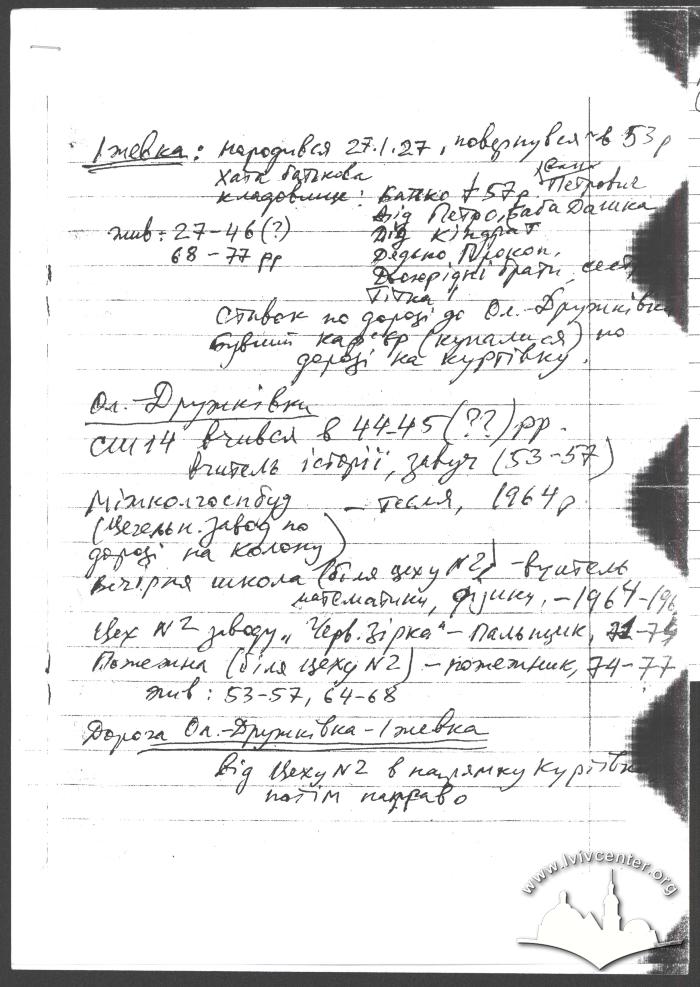 Іжевка: народився 27.I.27, повернувся в 53 р
Хата батькова
кладовище: Батько † 57 р Петрович
Дід Петро, Баба Дашка
жив: 27-46 (?) Дід Кіндрат
68-77 рр Дядько Прокоп,
Двоюрідні брати, сест
Тітка
Ставок по дорозі до Ол.-Дружківки
Бувший кар'єр (купалися) по
дорозі на Куртівку.
Ол.-Дружківка
СШ 14 вчився в 44-45 (??) рр.
вчитель історії, завуч (53-57)
Міжколгоспбуд - тесля, 1964 р.
(Цегельн. завод по
дорозі на колону)
вечірня школа (біля цеху N2) - вчитель
математики, фізики, - 1964-196
Цех N2 заводу „Черв. Зірка" - Пальщик, 71-74
Пожежна (біля цеху N2) - пожежник, 74-77
жив: 53-57, 64-68
Дорога Ол.-Дружківка-Іжевка
від Цеху N2 в напрямку Куртівки
потім направо
www.lvivcenter.org